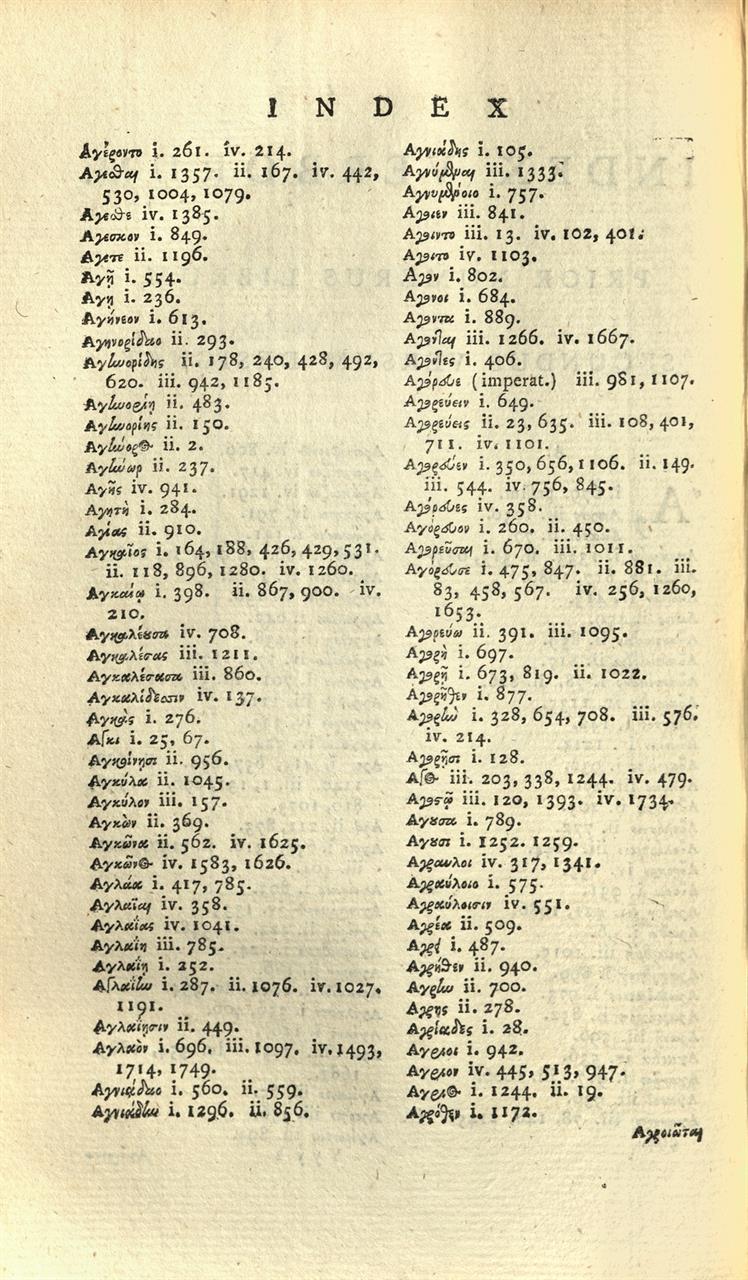 INDEX
Αγέροντο i. 261. iv. 214.
Αγεσθαι i. 1357. ii. 167. iv. 442,
530, 1004, 1079.
Αγεσθε iv. 1385.
Αγεσκον i. 849.
Αγετε ii. 1196.
Αγῆ i. 554.
Αγη i. 236.
Αγήνεον i. 613.
Αγηνορίδαο ii. 293.
Αγηνορίδης ii. 178, 240, 428, 492,
620. iii. 942, 1185.
Αγηνορέη ii. 483.
Αγηνορίης ii. 150.
Αγήνορος ii. 2.
Αγήνωρ ii. 237.
Αγῆς iv. 941.
Αγητὴ i. 284.
Αγίας ii. 910.
Αγκαῖος i. 164, 188, 426, 429, 531.
ii. 118, 896, 1280. iv. 1260.
Αγκαίῳ i. 398. ii. 867, 900. iv.
210.
Αγκαλέουσα iv. 708.
Αγκαλέσας iii. 1211.
Αγκαλέσασα iii. 860.
Αγκαλίδεσσιν iv. 137.
Αγκὰς i. 276.
Αγκι i. 25, 67.
Αγκοίνησι ii. 956.
Αγκύλα ii. 1045.
Αγκύλον iii. 157.
Αγκὼν ii. 369.
Αγκῶνα ii. 562. iv. 1625.
Αγκῶνος iv. 1583, 1626.
Αγλάα i. 417, 785.
Αγλαΐαι iv. 358.
Αγλαΐας iv. 1041.
Αγλαΐη iii. 785.
Αγλαΐῃ i. 252.
Αγλαΐην i. 287. ii. 1076. iv. 1027,
1191.
Αγλαΐησιν ii. 449.
Αγλαὸν i. 696. iii. 1097. iv. 1493,
1714, 1749.
Αγνιάδαο i. 560. ii. 559.
Αγνιάδην i. 1296. ii. 856.
Αγνιάδης i. 105.
Αγνύμεναι iii. 1333.
Αγνυμένοιο i. 757.
Αγοιεν iii. 841.
Αγοιντο iii. 13. iv. 102, 401.
Αγοιτο iv. 1103.
Αγον i. 802.
Αγονοι i. 684.
Αγοντα i. 889.
Αγονται iii. 1266. iv. 1667.
Αγοντες i. 406.
Αγόρευε (imperat.) iii. 981, 1107.
Αγορεύειν i. 649.
Αγορεύεις ii. 23, 635. iii. 108, 401,
711. iv. 1101.
Αγόρευεν i. 350, 656, 1106. ii. 149.
iii. 544. iv. 756, 845.
Αγόρευες iv. 358.
Αγόρευον i. 260. ii. 450.
Αγορεῦσαι i. 670. iii. 1011.
Αγόρευσε i. 475, 847. ii. 881. iii.
83, 458, 567. iv. 256, 1260,
1653.
Αγορεύω ii. 391. iii. 1095.
Αγορὴ i. 697.
Αγορῇ i. 673, 819. ii. 1022.
Αγορῆθεν i. 877.
Αγορὴν i. 328, 654, 708. iii. 576.
iv. 214.
Αγορῇσι i. 128.
Αγος iii. 203, 338, 1244. iv. 479.
Αγοστῷ iii. 120, 1393. iv. 1734.
Αγουσα i. 789.
Αγουσι i. 1252. 1259.
Αγραυλοι iv. 317, 1341.
Αγραύλοιο i. 575.
Αγραύλοισιν iv. 551.
Αγρέα ii. 509.
Αγρεῖ i. 487.
Αγρήθεν ii. 940.
Αγρην ii. 700.
Αγρης ii. 278.
Αγριάδες i. 28.
Αγριοι i. 942.
Αγριον iv. 445, 513, 947.
Αγριος i. 1244. ii. 19.
Αγρόθεν i. 1172.
Αγροιῶται